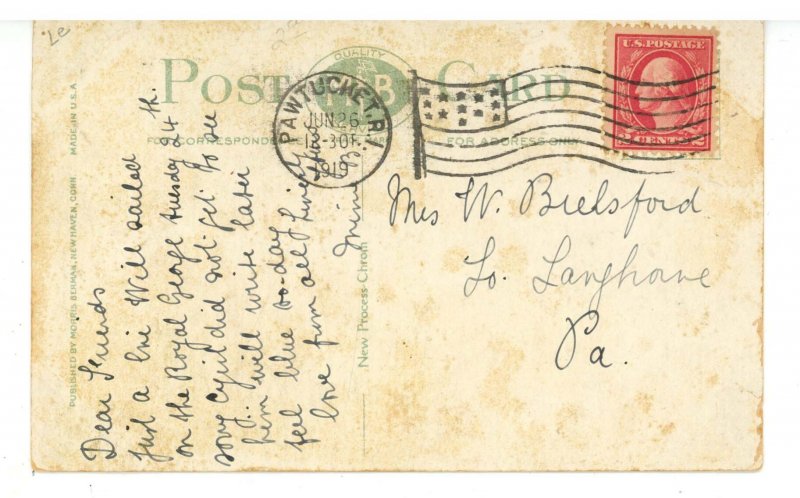 Le
POST CARD
QUALITY
M B
FOR CORRESPONDENCE
FOR ADDRESS ONLY
PAWTUCKET, R.I.
JUN 26
1919
U.S. POSTAGE
2 CENTS 2
Mrs W. Brelsford
So. Langhorne
Pa.
Dear Friends
Just a line Will sailed
on the Royal George tuesday 24 th.
sorry Cyril did not get to see
him.. will write later
feel blue to-day
love from all Sincerely
Yours
Minnie B.
PUBLISHED BY MORRIS BERMAN, NEW HAVEN, CONN. MADE IN U.S.A.
New Process-Chrom